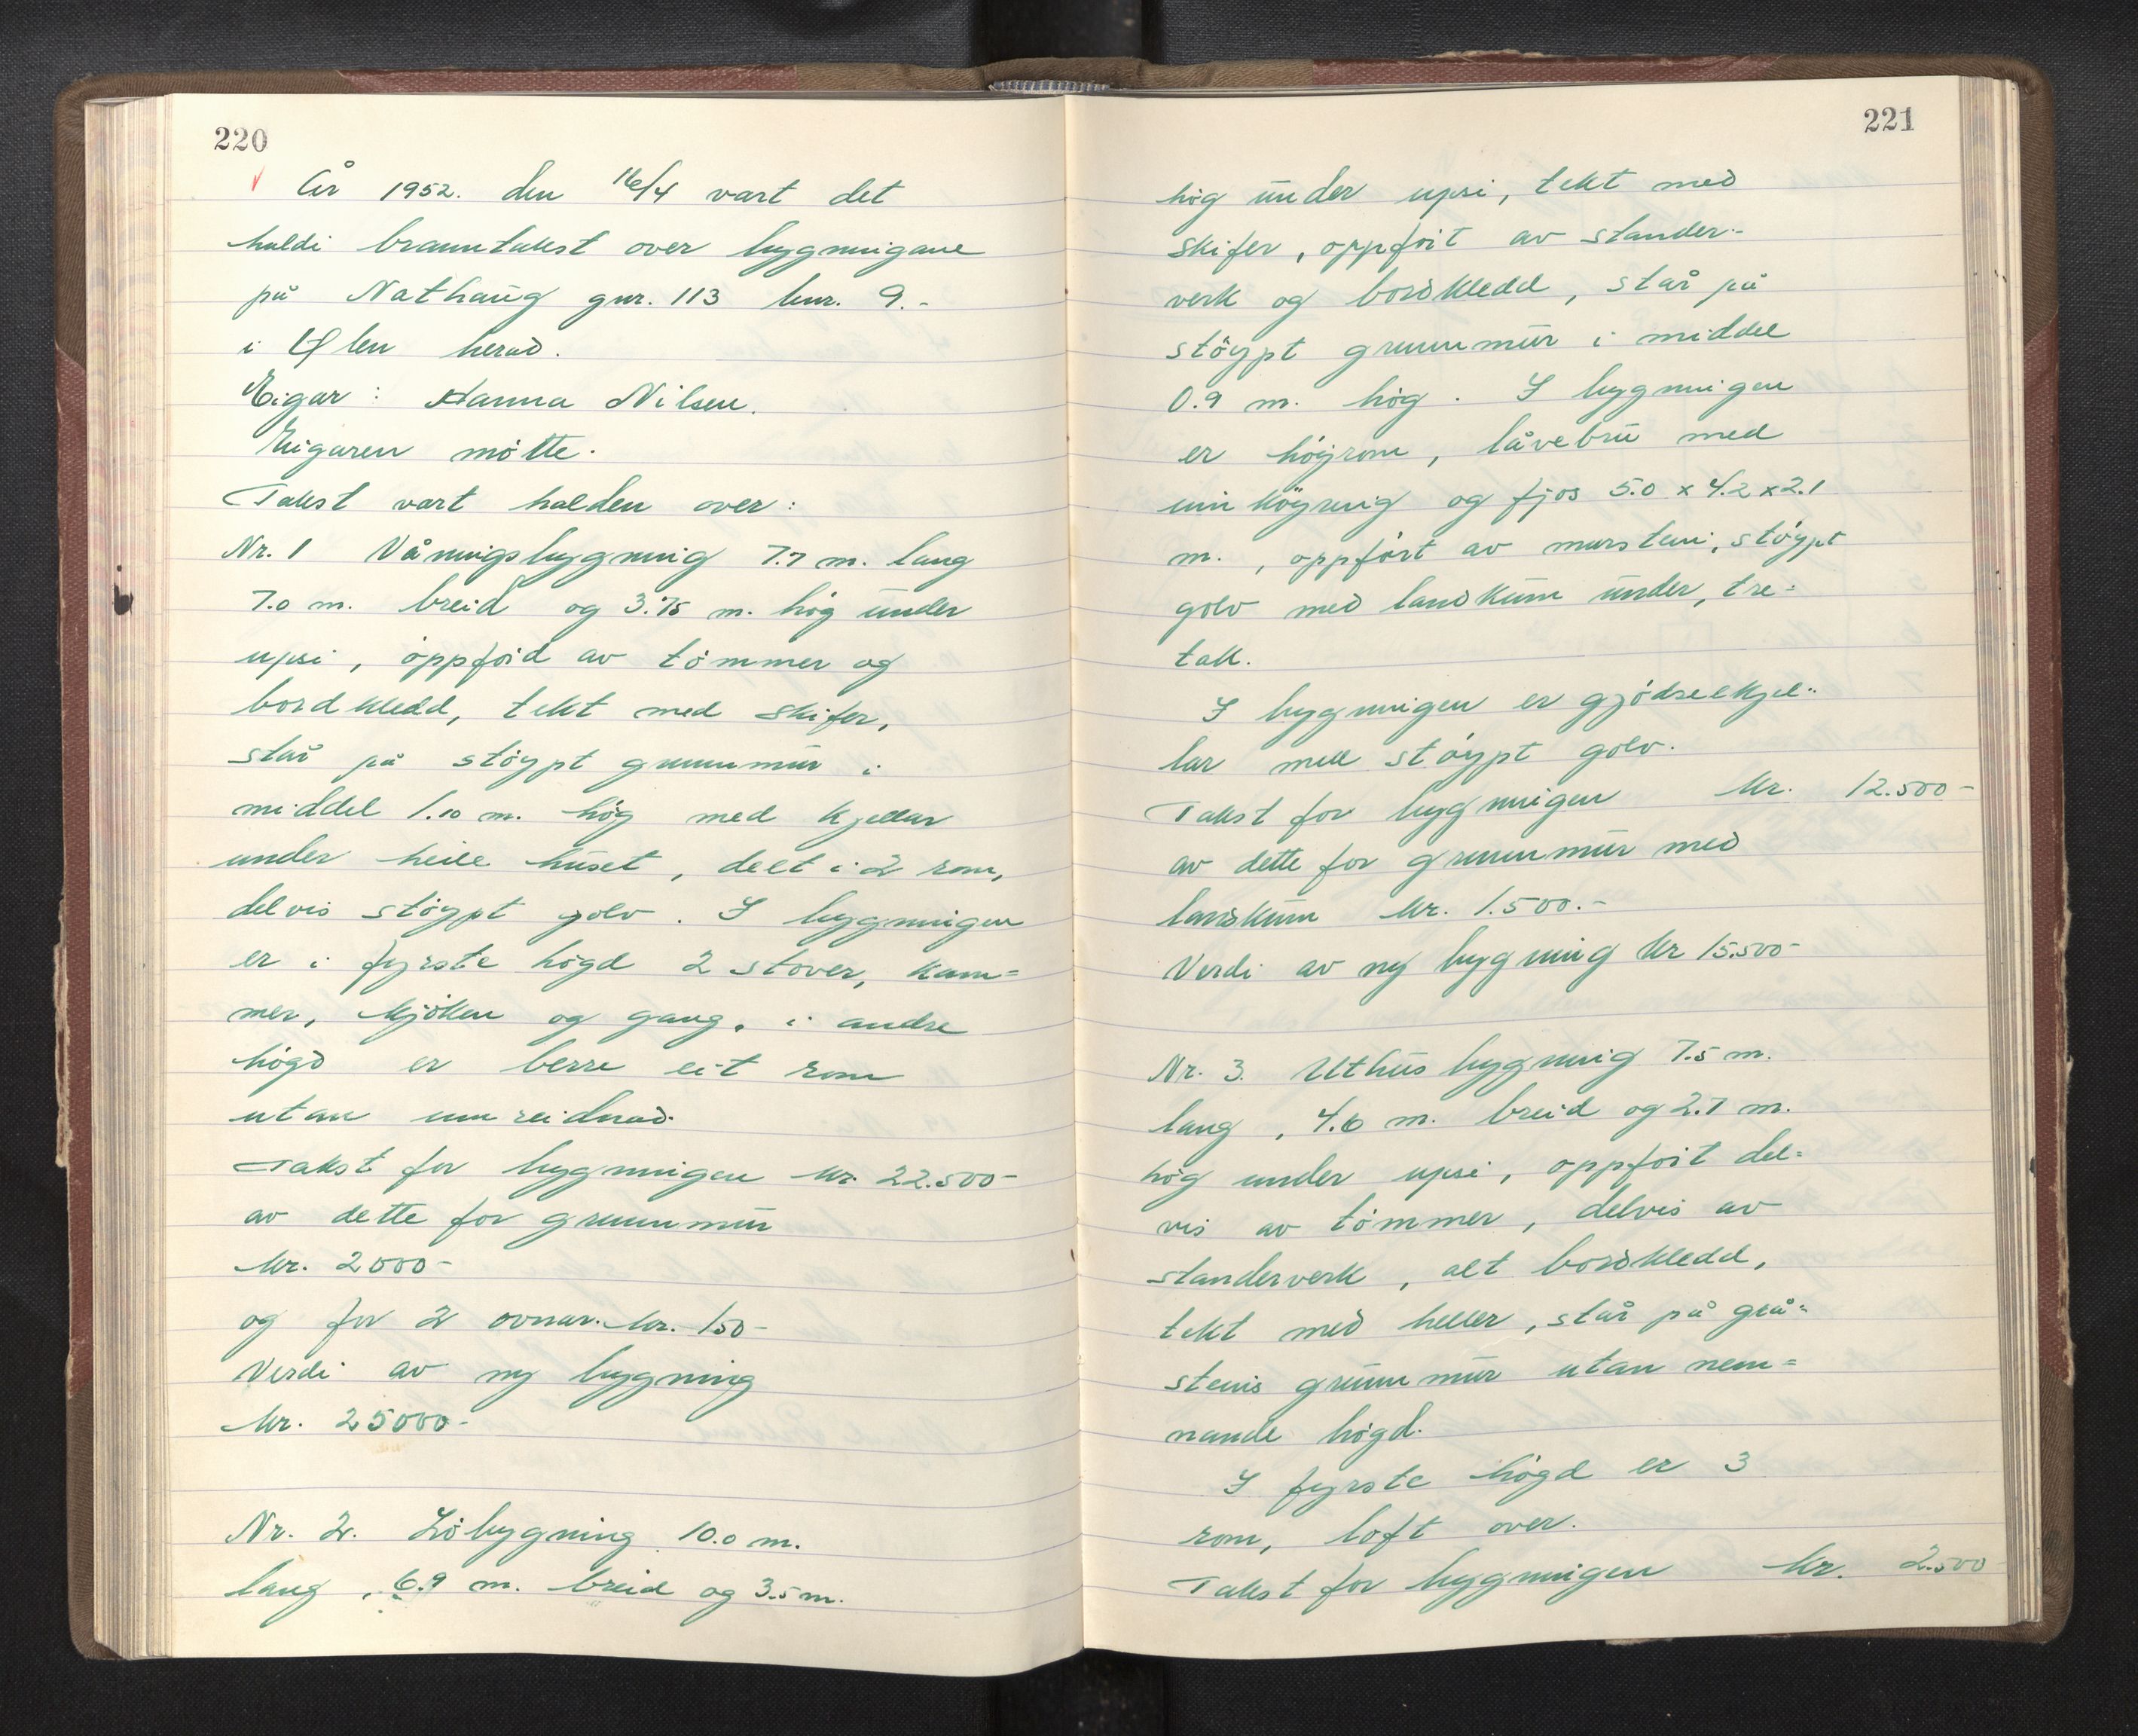 220
År 1952. den 16/4 vart det
haldi branntakst over bygningane
på Nathaug gnr. 113 bnr. 9.-
i Ølen herad.
Eigar: Hanna Nilsen.
Eigaren møtte.
Takst vart halden over:
Nr. 1 Våningsbygning 7.7 m. lang
7.0 m. breid og 3.75 m. høg under
upsi, oppføid av tømmer og
bordkledd, tekt med skifer,
står på støypt grunnmur i
middel 1.10 m. høg med kjellar
under heile huset, delt i 2 rom,
delvis støypt golv. I bygningen
er i fyrste høgd 2 stover, kam=
mer, kjøken og gang, i andre
høgd er berre eit rom
utan innreidnad.
Takst for bygningen kr. 22.500-
av dette for grunnmur
kr. 2000-
og for 2 ovnar. kr. 150-
Verdi av ny bygning
kr. 25000-
Nr. 2. Løbygning 10.0 m.
lang, 6.9 m. breid og 3.5 m.
221
høg under upsi, tekt med
skifer, oppføit av stander-
verk og bordkledd, står på
støypt grunnmur i middel
0.9 m. høg. I bygningen
er høyrom, låvebru med
innkøyring og fjos 5.0 x 4.2 x 2.1
m., oppført av murstein, støypt
golv med landkum under, tre=
tak.
I bygningen er gjødselkjel-
lar med støypt golv.
Takst for bygningen kr. 12.500-
av dette for grunnmur med
landkum kr. 1.500.-
Verdi av ny bygning kr 15.500-
Nr. 3. Uthusbygning 7.5 m.
lang, 4.6 m. breid og 2.7 m.
høg under upsi, oppføit del=
vis av tømmer, delvis av
standerverk, alt bordkledd,
tekt med heller, står på grå=
steins grunnmur utan nem=
nande høgd.
I fyrste høgd er 3
rom, loft over.
Takst for bygningen kr. 2.500-